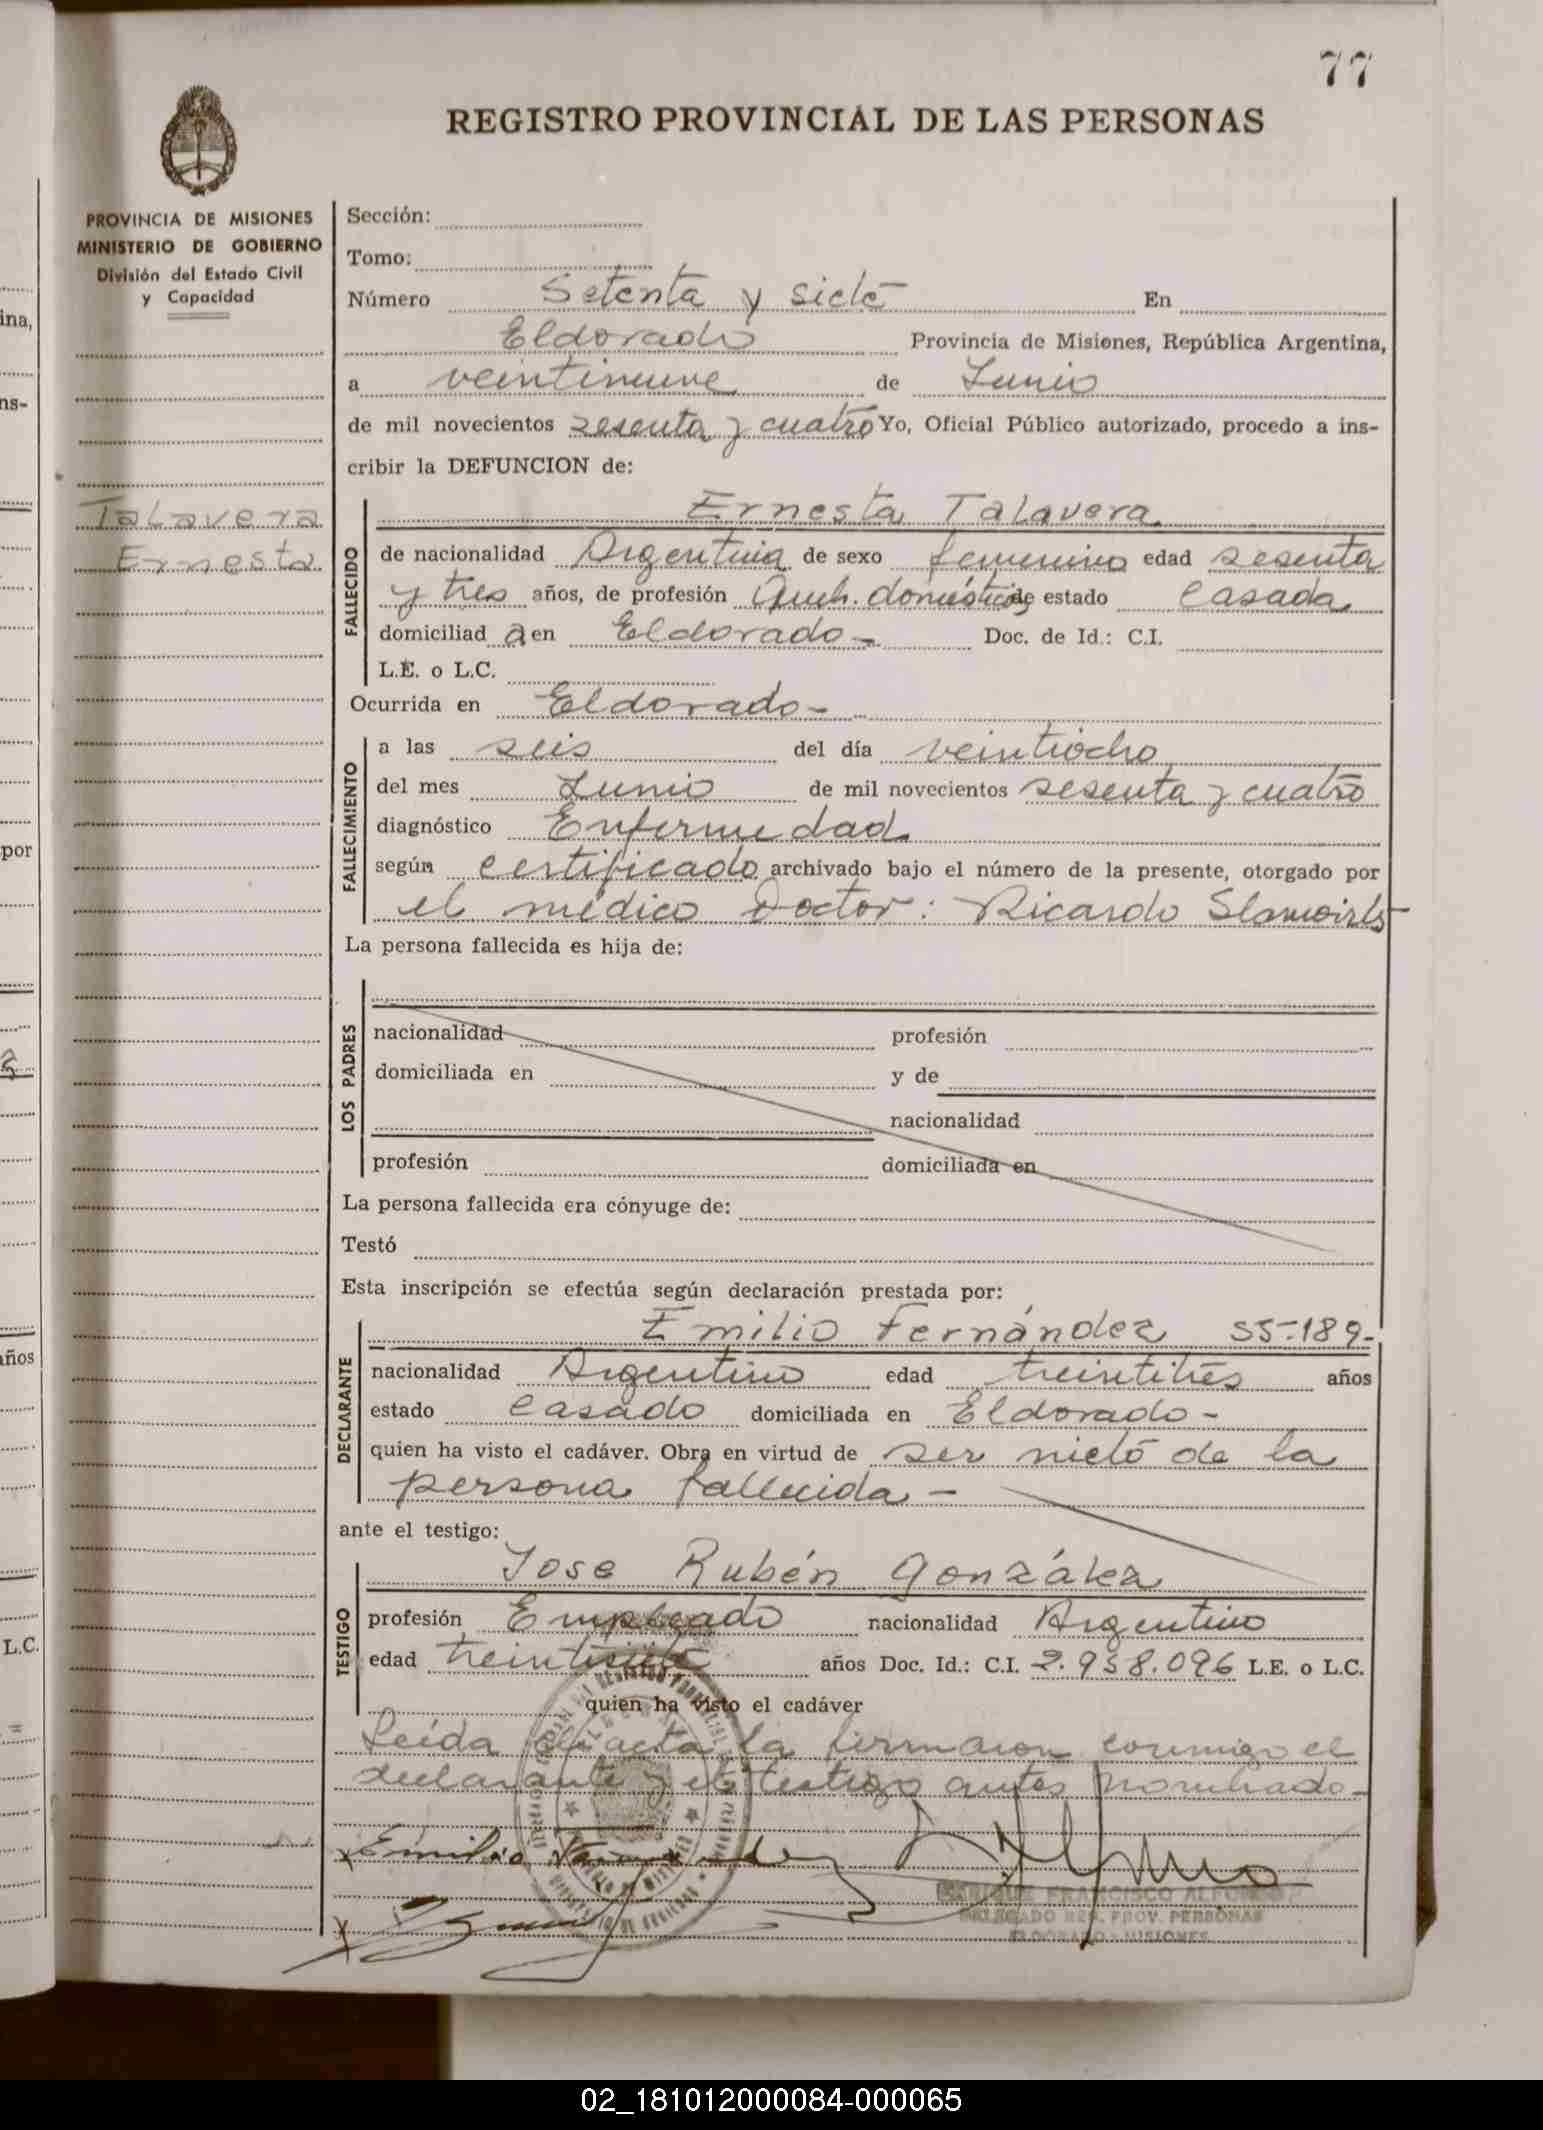 77
REGISTRO PROVINCIAL DE LAS PERSONAS
PROVINCIA DE MISIONES
MINISTERIO DE GOBIERNO
División del Estado Civil
y Capacidad
Talavera
Ernesta
Sección:
Tomo:
Número Setenta y siete En
Eldorado Provincia de Misiones, República Argentina,
a veintinueve de Junio
de mil novecientos sesenta y cuatro Yo, Oficial Público autorizado, procedo a ins-
cribir la DEFUNCION de:
FALLECIDO
Ernesta Talavera
de nacionalidad Argentina de sexo femenino edad sesenta
y tres años, de profesión Queh. domésticos de estado Casada
domiciliad a en Eldorado- Doc. de Id.: C.I.
L.E. o L.C.
Ocurrida en Eldorado-
FALLECIMIENTO
a las seis del día veintiocho
del mes Junio de mil novecientos sesenta y cuatro
diagnóstico Enfermedad
según certificado archivado bajo el número de la presente, otorgado por
el médico Doctor: Ricardo
La persona fallecida es hija de:
LOS PADRES
nacionalidad profesión
domiciliada en y de
nacionalidad
profesión domiciliada en
La persona fallecida era cónyuge de:
Testó
Esta inscripción se efectúa según declaración prestada por:
DECLARANTE
Emilio Fernández 55-189-
nacionalidad Argentino edad treintitres años
estado Casado domiciliada en Eldorado-
quien ha visto el cadáver. Obra en virtud de ser nieto de la
persona fallecida-
ante el testigo:
TESTIGO
Jose Rubén González
profesión Empleado nacionalidad Argentino
edad treintisiete años Doc. Id.: C.I. 2.958.096 L.E. o L.C.
quien ha visto el cadáver
Leída el acta, la firmaron conmigo el
declarante y el testigo antes nombrado-
Emilio Fernandez
ENRIQUE FRANCISCO ALFONSO
DELEGADO REG. PROV. PERSONAS
ELDORADO - MISIONES
ina,
ns-
por
años
L.C.
02_181012000084-000065